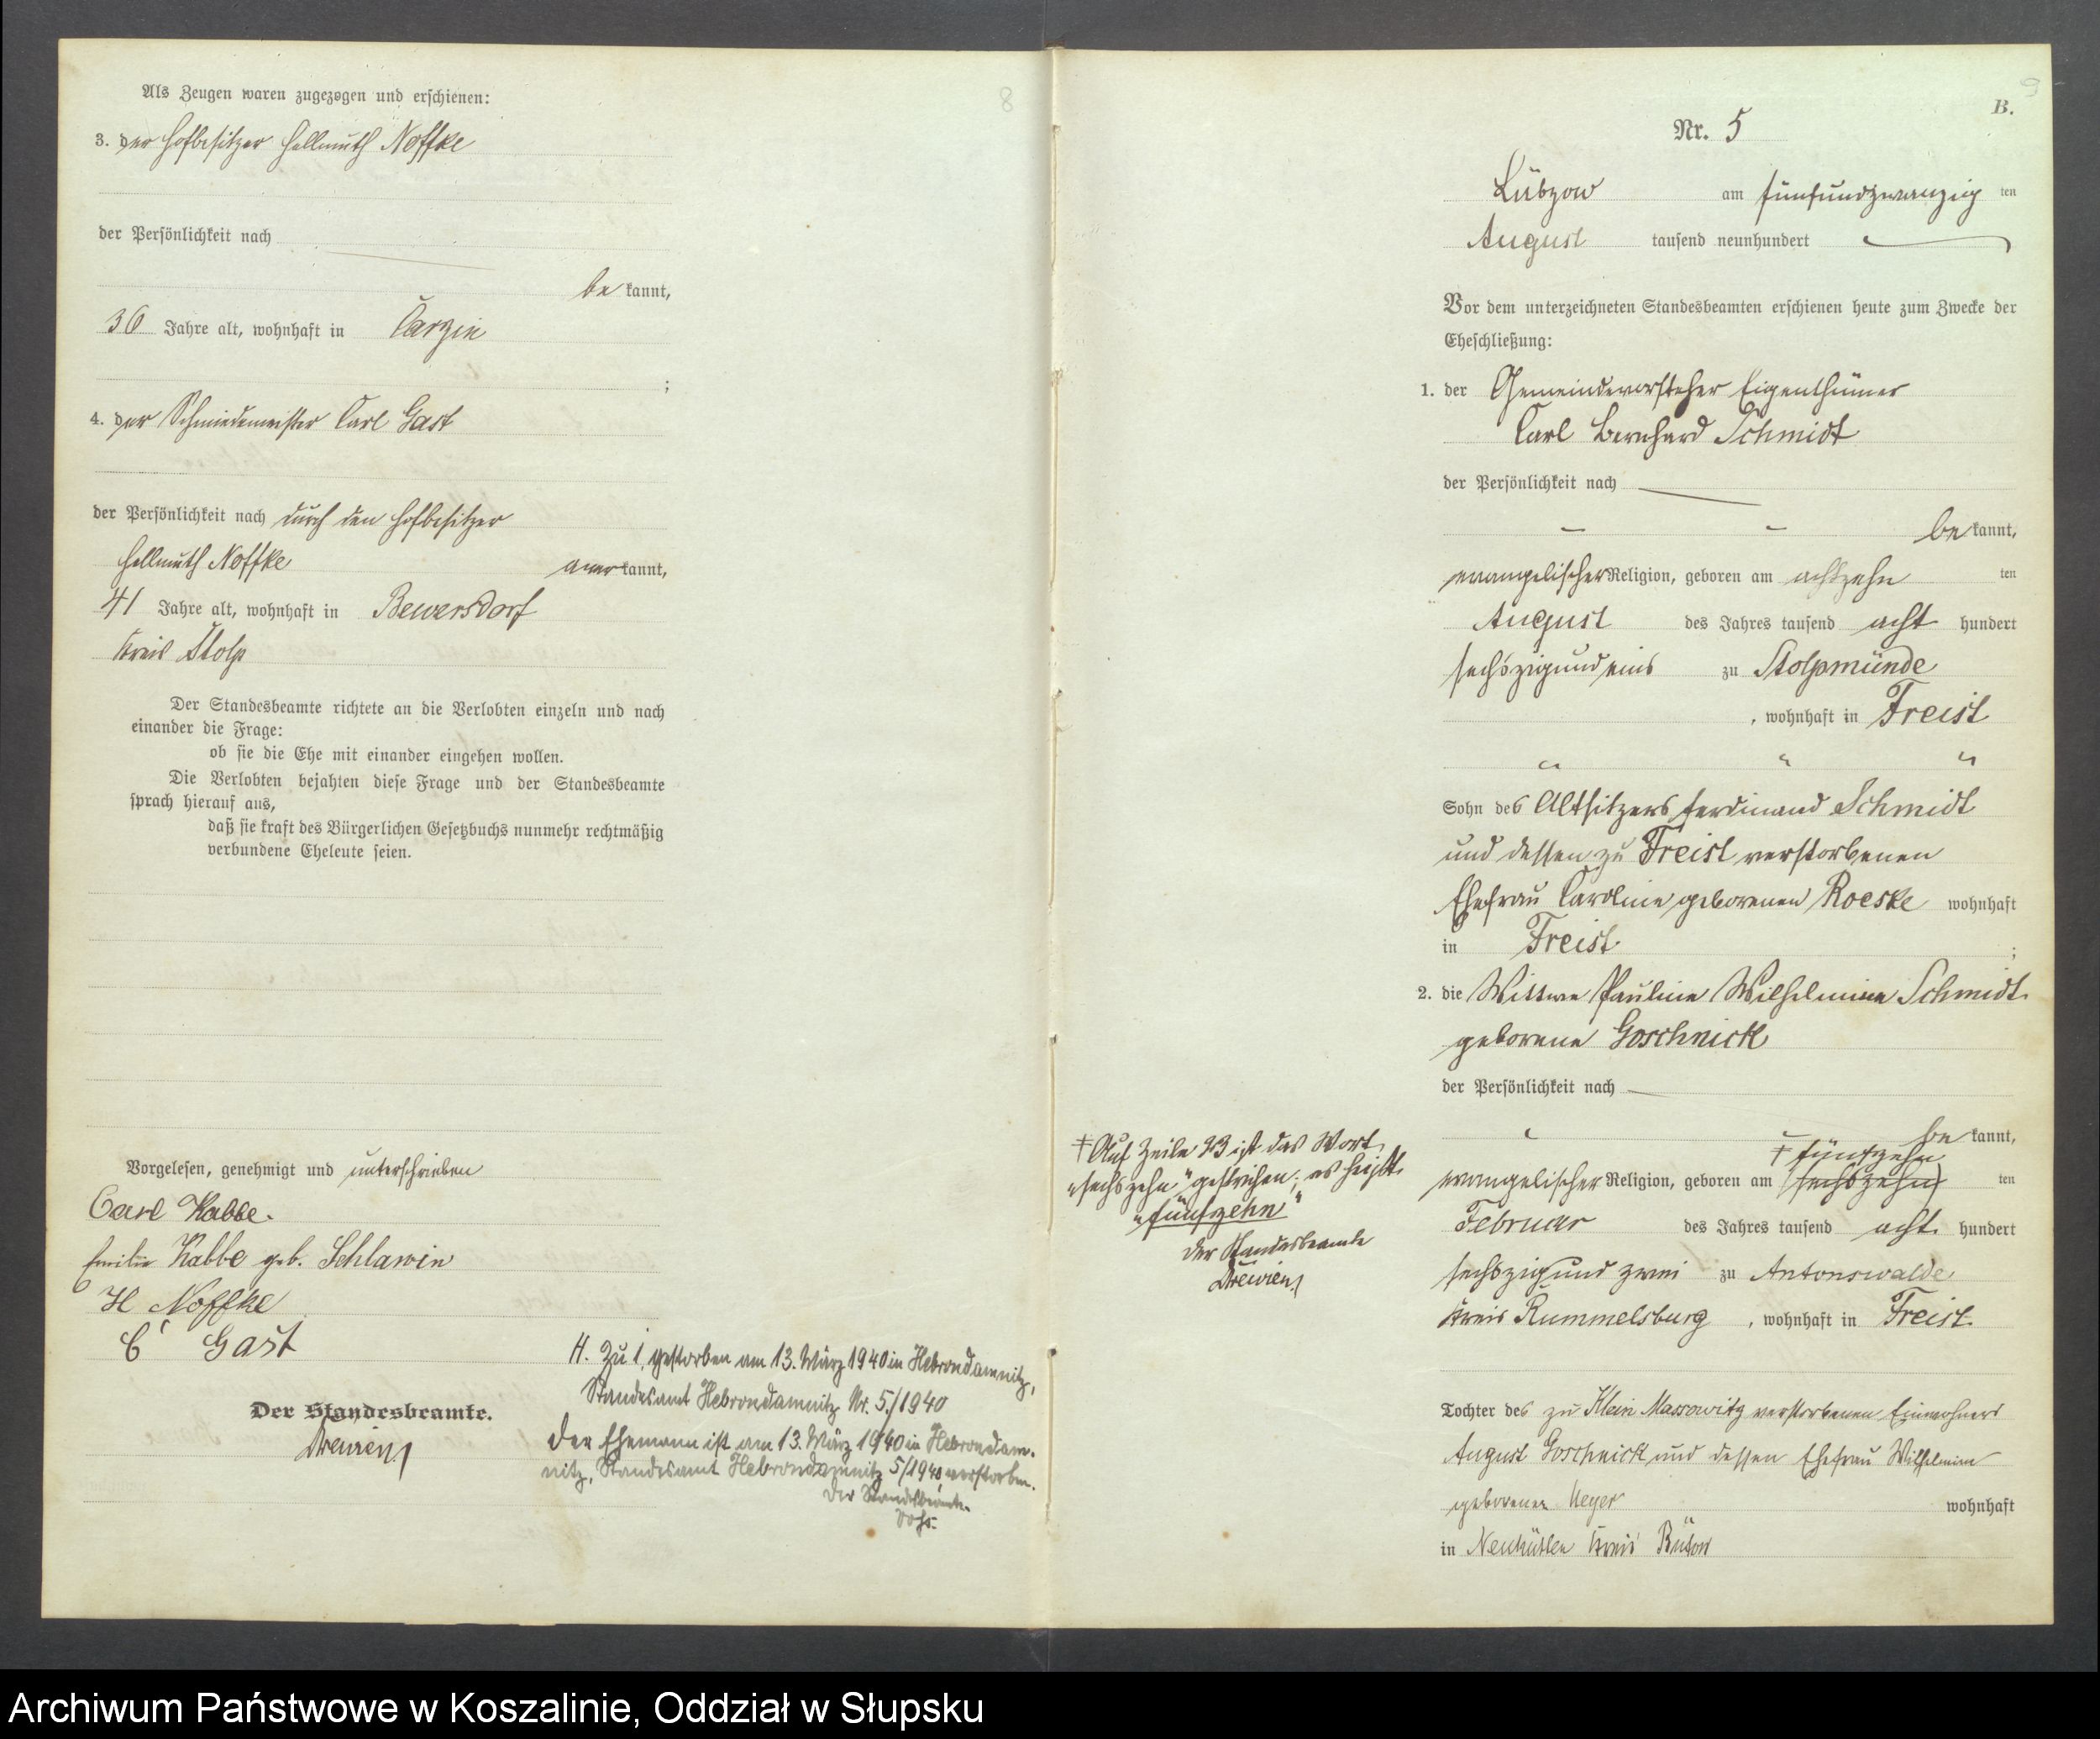 Als Zeugen waren zugezogen und erschienen:
3. der Hofbesitzer Hellmuth Noffke
der Persönlichkeit nach
be kannt,
36 Jahre alt, wohnhaft in Carzin
;
4. der Schmiedemeister Carl Gast
der Persönlichkeit nach durch den Hofbesitzer
Hellmuth Noffke anerkannt,
41 Jahre alt, wohnhaft in Bewersdorf
Kreis Stolp
Der Standesbeamte richtete an die Verlobten einzeln und nach
einander die Frage:
ob sie die Ehe mit einander eingehen wollen.
Die Verlobten bejahten diese Frage und der Standesbeamte
sprach hierauf aus,
daß sie kraft des Bürgerlichen Gesetzbuchs nunmehr rechtmäßig
verbundene Eheleute seien.
Vorgelesen, genehmigt und unterschrieben
Carl Kabbe.
Emilie Kabbe geb. Schlawin
H Noffke
C Gast
Der Standesbeamte.
Drewien
H. Zu 1, gestorben am 13. März 1940 in Hebrondamnitz,
Standesamt Hebrondamnitz Nr. 5/1940
Der Ehemann ist am 13. März 1940 in Hebrondam-
nitz, Standesamt Hebrondamnitz 5/1940 verstorben.
Der Standesbeamte.
8
9
B.
Nr. 5
Lübzow am fünfundzwanzig ten
August tausend neunhundert
Vor dem unterzeichneten Standesbeamten erschienen heute zum Zwecke der
Eheschließung:
1. der Gemeindevorsteher Eigenthümer
Carl Bernhard Schmidt
der Persönlichkeit nach
be kannt,
evangelischer Religion, geboren am achtzehn ten
August des Jahres tausend acht hundert
sechszigundeins zu Stolpmünde
, wohnhaft in Freist
Sohn des Altsitzers Ferdinand Schmidt
und dessen zu Freist verstorbenen
Ehefrau Caroline geborenen Roeske wohnhaft
in Freist ;
2. die Wittwe Pauline Wilhelmine Schmidt
geborene Goschnick
der Persönlichkeit nach
be kannt,
‡ fünfzehn
evangelischer Religion, geboren am (sechszehn) ten
Februar des Jahres tausend acht hundert
sechszig und zwei zu Antonswalde
Kreis Rummelsburg , wohnhaft in Freist
Tochter des zu Klein Massowitz verstorbenen Einwohners
August Goschnick und dessen Ehefrau Wilhelmine
geborenen Meyer wohnhaft
in Neuhütten Kreis Bütow
‡ Auf Zeile 23 ist das Wort
„sechszehn" gestrichen; es heißt
„fünfzehn"
Der Standesbeamte
Drewien
Archiwum Państwowe w Koszalinie, Oddział w Słupsku